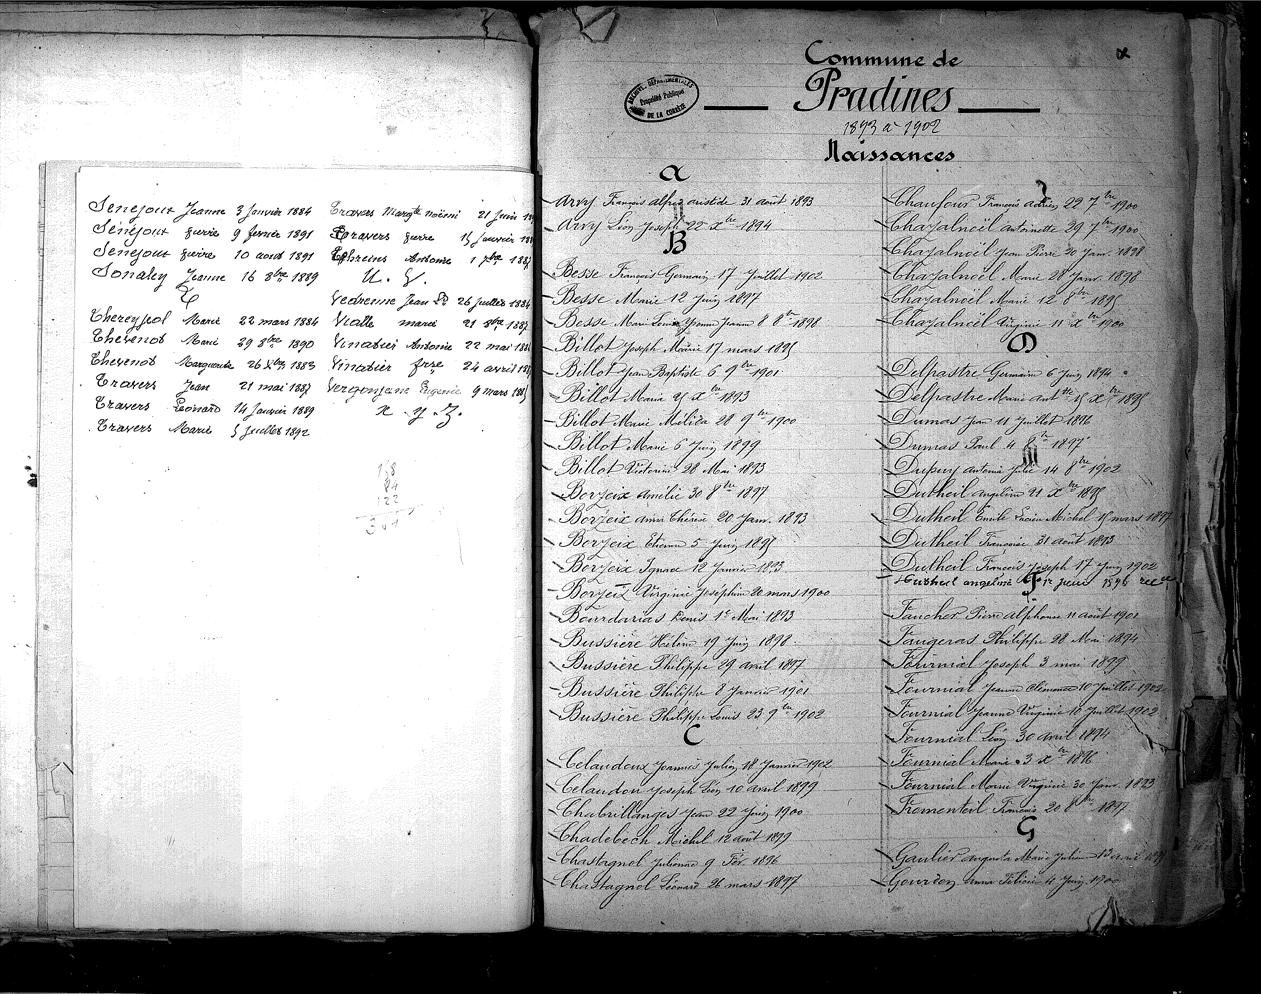 Senejoux Jeanne 3 Janvier 1884
Sénéjoux pierre 9 fevrier 1891
Senejoux pierre 10 aout 1891
Sondley Jeanne 16 8bre 1889
T
Thereypol Marie 22 mars 1884
Thevenot Marie 29 8bre 1890
Thevenot Marguerite 26 Xbre 1883
Travers Jean 21 mai 1887
Travers Léonard 14 Janvier 1889
Travers Marie 5 Juillet 1892
Travers Margte noëmi 21 Juin
Travers pierre 15 Janvier
Antoine 1 7bre
U. V.
Vedrenne Jean Bte 26 Juillet 1884
Vialle marie 21 8bre
Vinatier Antoine 22 mai
Vinatier frse 24 avril
Vergonjane Eugenie 9 mars
x y Z.
158
84
122
Commune de
Pradines
ARCHIVES DÉPARTEMENTALES
Propriété Publique
DE LA CORRÈZE
1893 à 1902
Naissances
A
Arvy François alfred aristide 31 août 1893
Arvy Léon Joseph 22 Xbre 1894
B
Besse François Germain 17 Juillet 1902
Besse Marie 12 Juin 1897
Besse Marie Louise Yvonne Jeanne 8 8bre 1898
Billot Joseph Marie 17 mars 1895
Billot Jean Baptiste 6 9bre 1901
Billot Marie 25 Xbre 1893
Billot Marie Mélida 28 9bre 1900
Billot Marie 6 Juin 1899
Billot Victorine 28 Mai 1893
Borzeix Amélie 30 8bre 1897
Borzeix anna Thérèse 20 Janv. 1893
Borzeix Etienne 5 Juin 1895
Borzeix Ignace 12 Janvier 1893
Borzeix Virginie Joséphine 20 mars 1900
Bourdarias Denis 1er Mai 1893
Bussière Hélène 19 Juin 1898
Bussière Philippe 29 avril 1897
Bussière Philippe 8 Janvier 1901
Bussière Philippe Louis 23 9bre 1902
C
Celaudoux Jeannes Julien 18 Janvier 1902
Celaudou Joseph Léon 10 avril 1899
Chabrillanges Jean 22 Juin 1900
Chadebech Michel 12 août 1899
Chastagnol Julienne 9 Fév. 1896
Chastagnol Léonard 26 mars 1897
Chaufour François adrien 29 7bre 1900
Chazalnoël antoinette 29 7bre 1900
Chazalnoël Jean Pierre 20 Janv. 1898
Chazalnoël Marie 28 Janv. 1898
Chazalnoël Marie 12 8bre 1895
Chazalnoël Virginie 11 Xbre 1900
D
Delpastre Germain 6 Juin 1894
Delpastre Marie antte 15 Xbre 1895
Dumas Jean 11 Juillet 1896
Dumas Paul 4 8bre 1897
Dupuy antonia Julie 14 8bre 1902
Dutheil angeline 21 Xbre 1895
Dutheil Emile Lucien Michel 15 mars 1897
Dutheil Françoise 31 août 1893
Dutheil François Joseph 17 Juin 1902
Dutheil angeline 1er 1896
F
Faucher Pierre alphonse 11 août 1901
Faugeras Philippe 28 Mai 1894
Fournial Joseph 3 mai 1899
Fournial Jeanne Clémence 10 Juillet 1902
Fournial Jeanne Virginie 10 Juillet 1902
Fournial Léon 30 avril 1894
Fournial Marie 3 Xbre 1896
Fournial Marie Virginie 30 Janv. 1893
Fromenteil François 20 8bre 1897
G
Gaulier augusta Marie Julienne 13 avril
Gourdon anna Félicie 4 Juin 1900